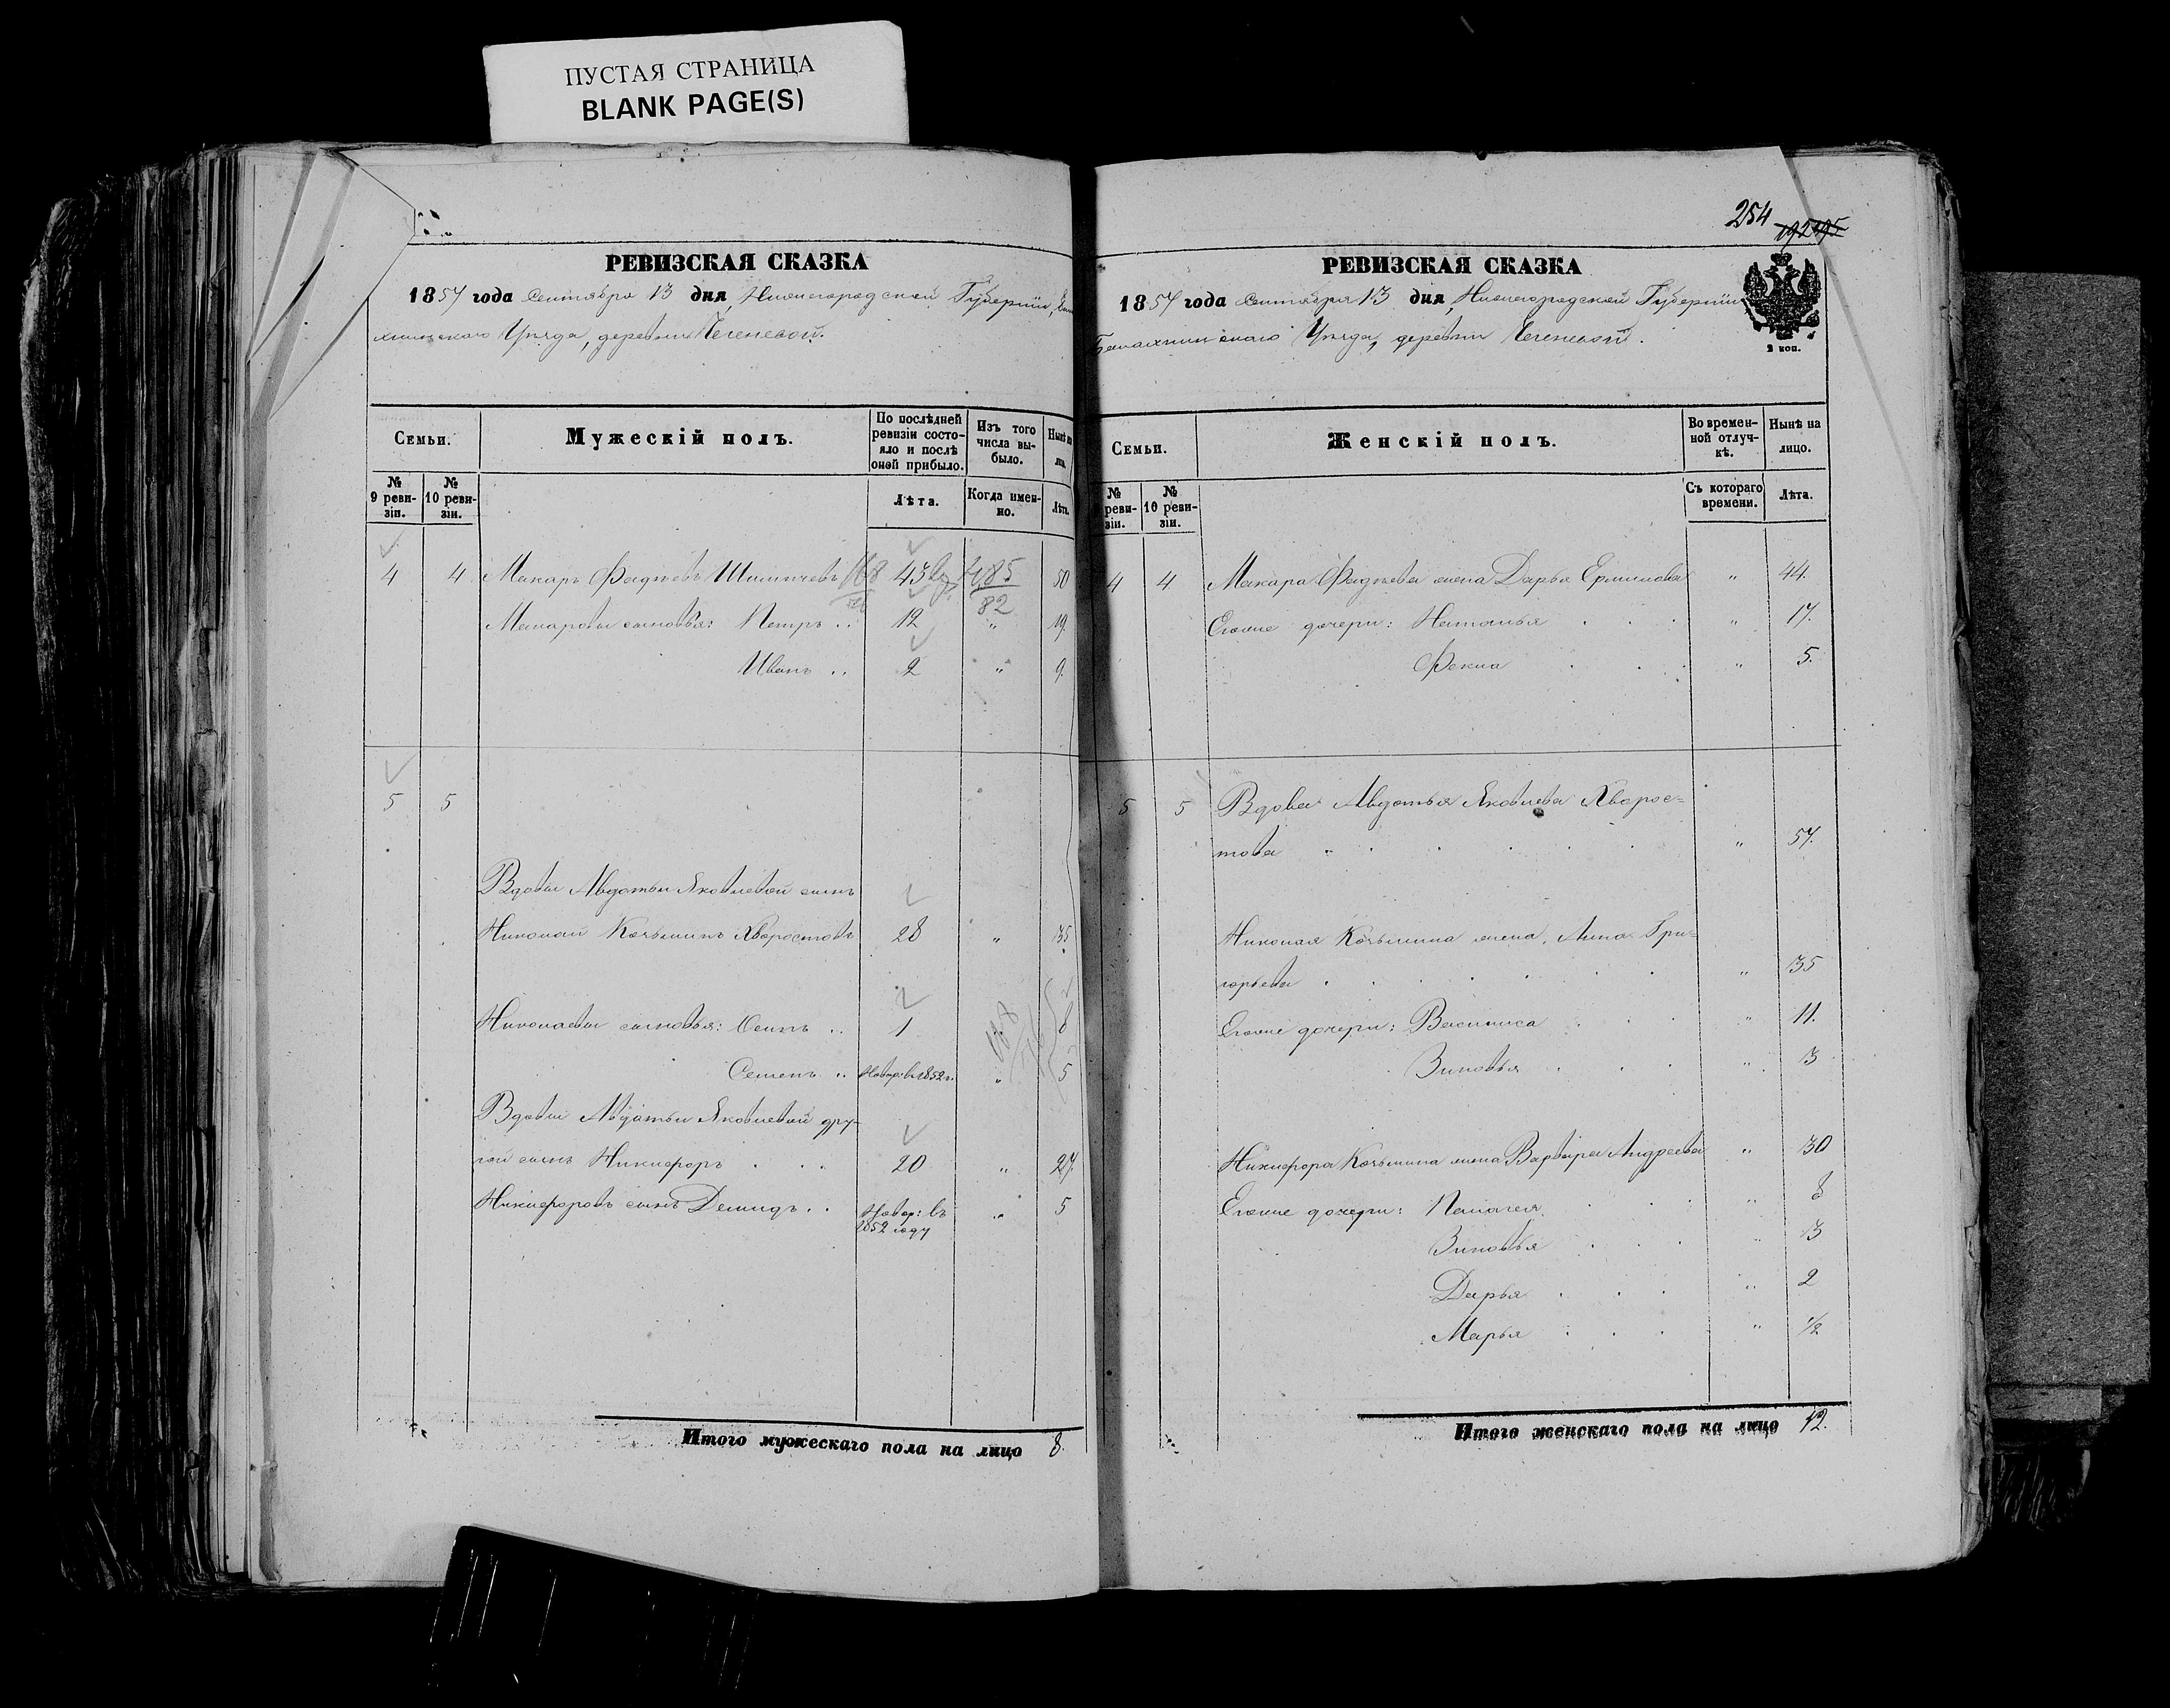 ПУСТАЯ СТРАНИЦА
BLANK PAGE(S)
РЕВИЗСКАЯ СКАЗКА
1857 года Сентября 13 дня, Нижегородской Губернiи, Бала
хнинскаго Уѣзда, деревни Чегеневой.
Семьи.
Мужескiй полъ.
По послѣдней
ревизiи состо-
яло и послѣ
оной прибыло.
Изъ того
числа вы-
было.
Нынѣ на
лиц.
№
9 реви-
зiи.
№
10 реви-
зiи.
Лѣта.
Когда имен-
но.
Лѣта.
4 4 Макаръ Фадѣевъ 43 50
82
Макаровы сыновья: Петръ .. 12 " 19.
Иванъ .. 2 " 9.
5 5
Вдовы Авдотьи Яковлевой сынъ
Николай Козьминъ Хворостовъ 28 " 35
Николаевы сыновья: Осипъ .. 1 8
Семенъ .. Новор: въ 1852 г. " 5
Вдовы Авдотьи Яковлевой дру-
гой сынъ Никифоръ . . . 20 " 27.
Никифоровъ сынъ Демидъ . . Новор: въ 1852 году " 5
Итого мужескаго пола на лицо 8.
254
РЕВИЗСКАЯ СКАЗКА
1857 года Сентября 13 дня, Нижегородской Губернiи
Балахнинскаго Уѣзда, деревни Чегеневой.
2 коп.
Семьи.
Женскiй полъ.
Во времен-
ной отлуч-
кѣ.
Нынѣ на
лицо.
№
реви-
зiи.
№
10 реви-
зiи.
Съ котораго
времени.
Лѣта.
4 4 Макара Фадѣева жена Дарья Ермилова " 44.
Егоже дочери: Наталья . . . " 17.
Фекла . . . " 5.
5 5 Вдова Авдотья Яковлева Хворос=
това " . . . . . " 57.
Николая Козьмина жена, Анна Гри=
горьева . . . . . . " 35
Егоже дочери: Василиса . . . " 11.
Зиновья . . . " 3
Никифора Козьмина жена Варвара Андреева " 30
Егоже дочери: Палагея . . . " 8
Зиновья . . . " 3
Дарья . . . " 2
Марья . . . " 1/2
Итого женскаго пола на лицо 12.